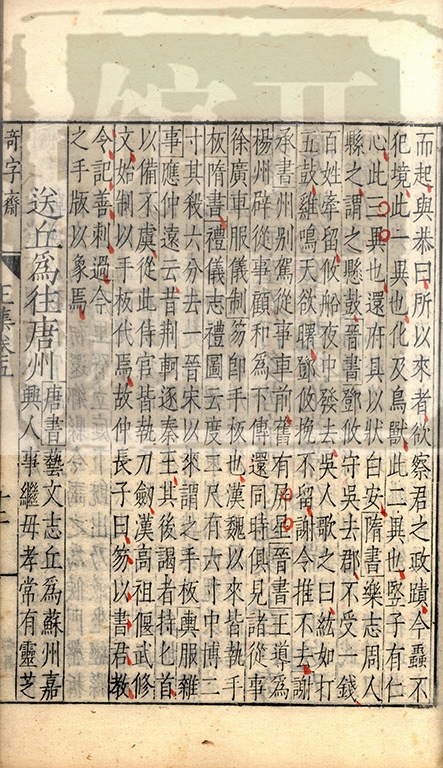 而起與恭曰所以來者欲察君之政蹟今蟲不
犯境此一異也化及鳥獸此二異也竪子有仁
心此三異也還府具以狀白安隋書樂志周人
縣之謂之懸鼓晉書鄧攸守吳去郡不受一錢
百姓牽留攸船夜中發去吳人歌之曰紞如打
五鼓雞鳴天欲曙鄧攸挽不留謝令推不去謝
承書州別駕從事車前舊有屏星晉書王導爲
楊州辟從事顧和爲下傳還同時俱見諸從事
徐廣車服儀制笏卽手板也漢魏以來皆執手
板隋書禮儀志禮圖云度二尺有六寸中博二
寸其殺六分去一晉宋以來謂之手板輿服雜
事應仲遠云昔荆軻逐秦王其後謁者持匕首
以備不虞從此侍官皆執刀劔漢高祖偃武修
文始制以手板代焉故仲長子曰笏以書君教
令記善刺過今
之手版以象焉
送丘爲往唐州
唐書藝文志丘爲蘇州嘉
興人事繼母孝常有靈芝
奇字齋
王集卷五
十二